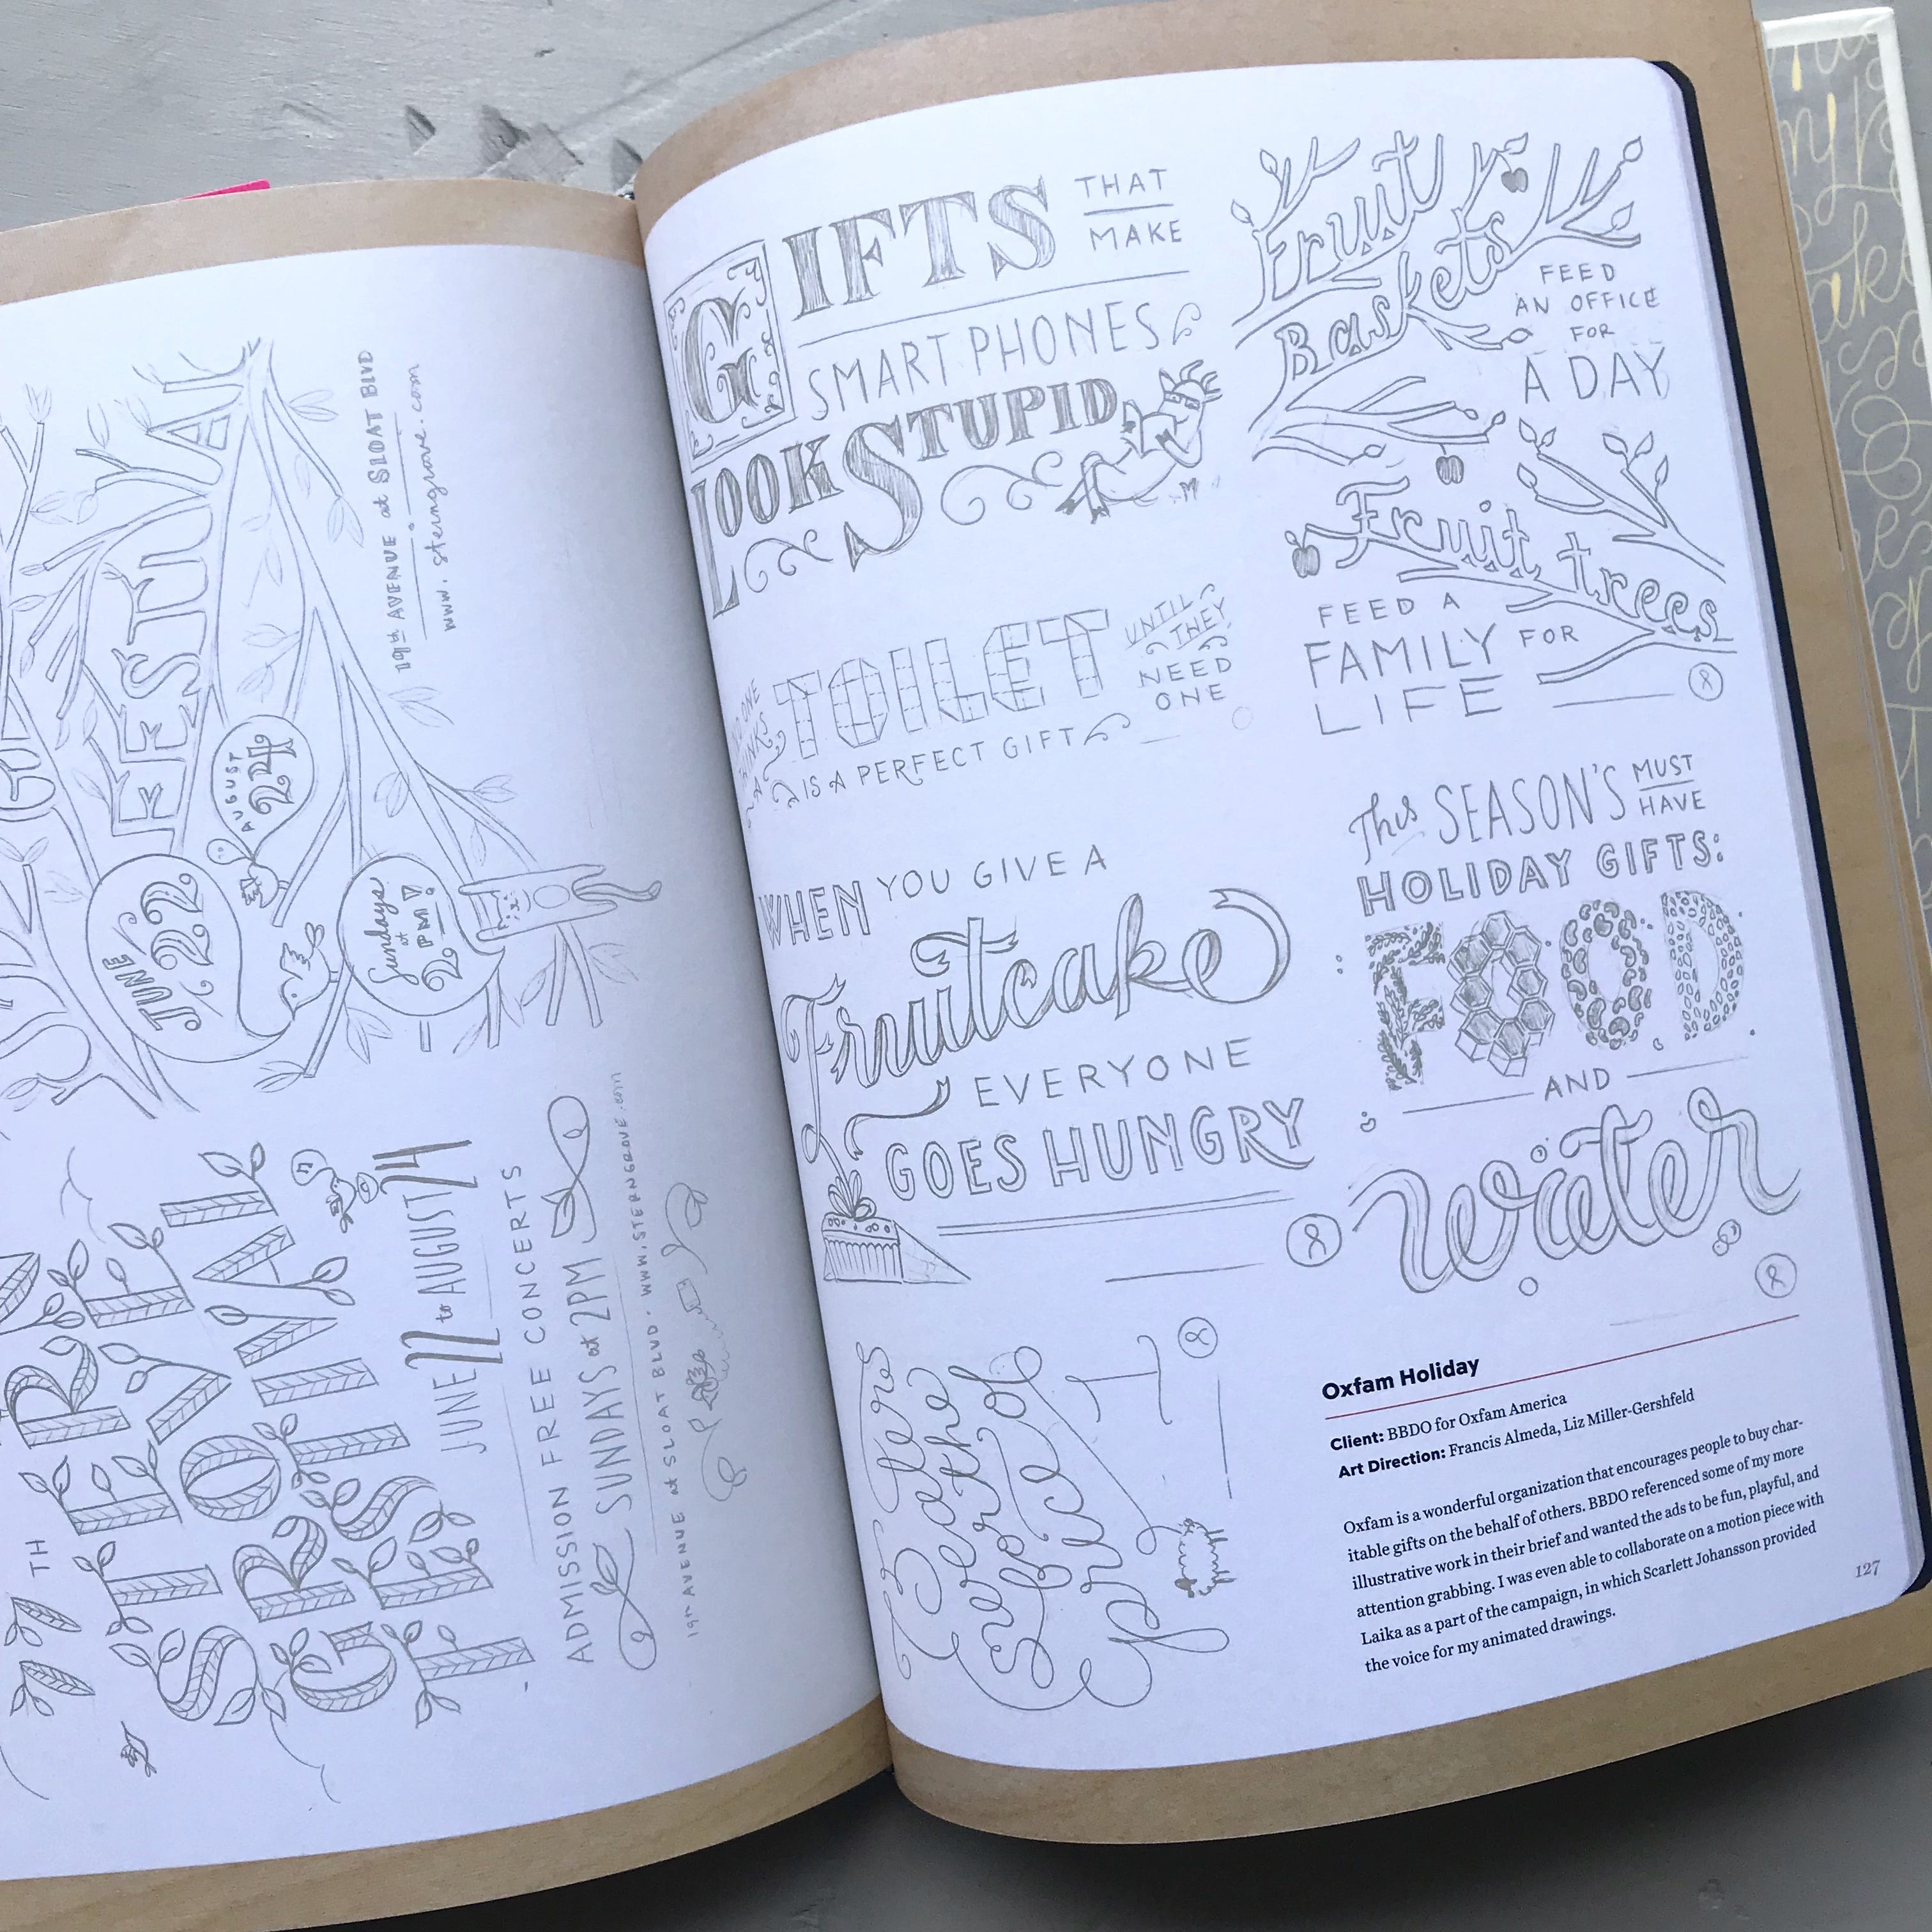 FESTIVAL
19th AVENUE at SLOAT BLVD
www.sterngrove.com
JUNE
22
AUGUST
24
Sundays
at
2 PM!
77TH
STERN
GROVE
FESTIVAL
JUNE 22 to AUGUST 24
ADMISSION FREE CONCERTS
SUNDAYS at 2PM
19th AVENUE at SLOAT BLVD. WWW.STERNGROVE.com
GIFTS THAT
MAKE
SMART PHONES
LOOK STUPID
NO ONE
THINKS
A
TOILET
IS A PERFECT GIFT
UNTIL
THEY
NEED
ONE
WHEN YOU GIVE A
Fruitcake
EVERYONE
GOES HUNGRY
for the
price of
1
Fruit
Baskets
FEED
AN OFFICE
FOR
A DAY
Fruit trees
FEED A
FAMILY FOR
LIFE
This SEASON'S MUST
HAVE
HOLIDAY GIFTS:
FOOD
AND
water
Oxfam Holiday
Client: BBDO for Oxfam America
Art Direction: Francis Almeda, Liz Miller-Gershfeld
Oxfam is a wonderful organization that encourages people to buy char-
itable gifts on the behalf of others. BBDO referenced some of my more
illustrative work in their brief and wanted the ads to be fun, playful, and
attention grabbing. I was even able to collaborate on a motion piece with
Laika as a part of the campaign, in which Scarlett Johansson provided
the voice for my animated drawings.
127